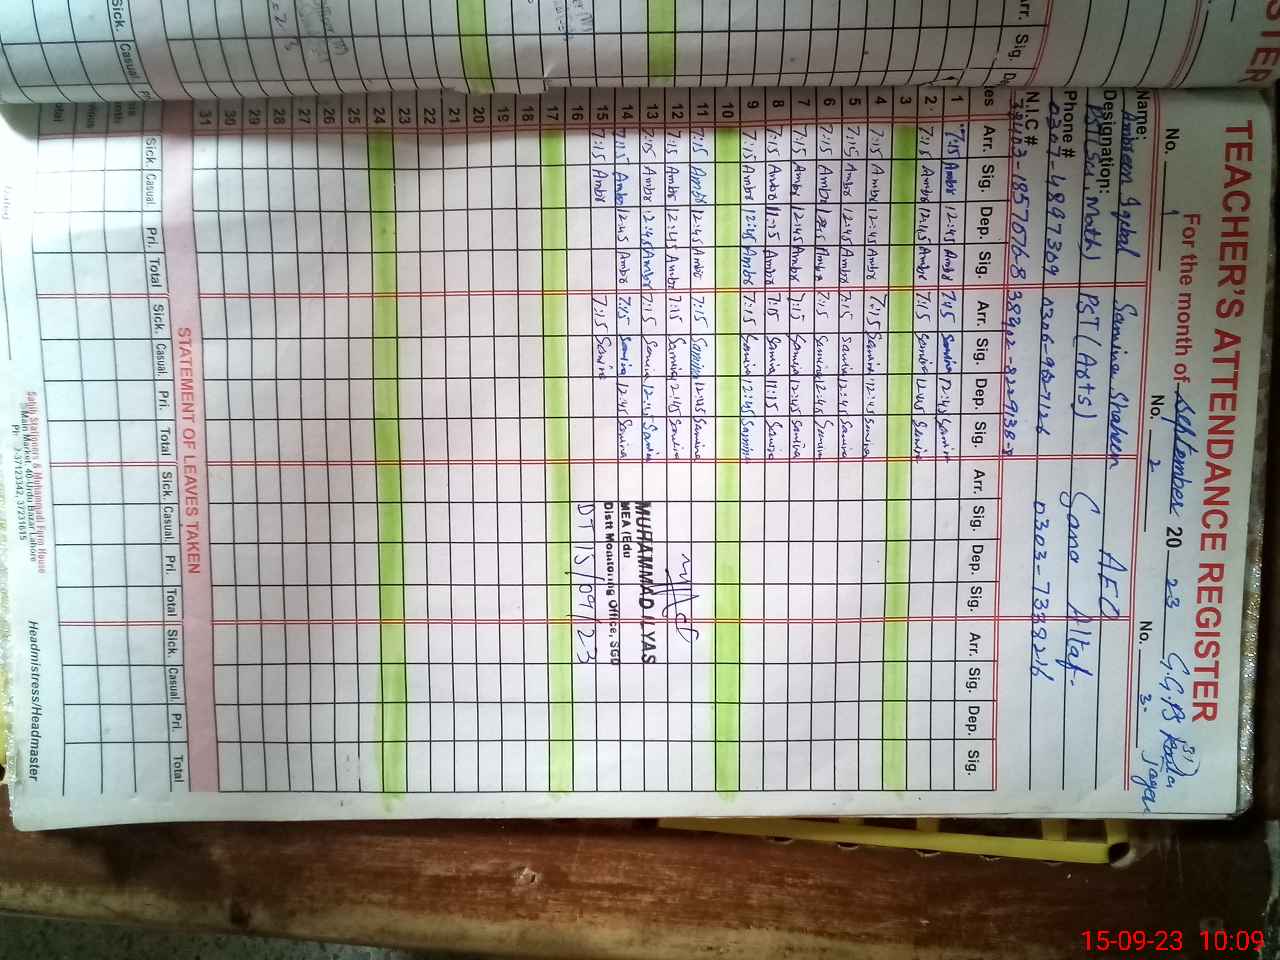 TEACHER'S ATTENDANCE REGISTER
For the month of September 20 23 G.G.P.S
No. 1 No. 2 No. 3
Name: Ambreen Iqbal Samina Shaheen AEO
Designation: PST (Sci. Math) PST (Arts) Sana Altaf
Phone # 0307-4897309 0303-7338216
N.I.C #
Arr. Sig. Dep. Sig. Arr. Sig. Dep. Sig. Arr. Sig. Dep. Sig. Arr. Sig. Dep. Sig.
1 7:15 Ambr 12:45 Ambr 7:15 Samina 12:45 Samina
2 7:15 Ambr 12:45 Ambr 7:15 Samina 12:45 Samina
3
4 7:15 Ambr 12:45 Ambr 7:15 Samina 12:45 Samina
5 7:15 Ambr 12:45 Ambr 7:15 Samina 12:45 Samina
6 7:15 Ambr 12:45 Ambr 7:15 Samina 12:45 Samina
7 7:15 Ambr 12:45 Ambr 7:15 Samina 12:45 Samina
8 7:15 Ambr 11:15 Ambr 7:15 Samina 11:15 Samina
9 7:15 Ambr 12:45 Ambr 7:15 Samina 12:45 Samina
10
11 7:15 Ambr 12:45 Ambr 7:15 Samina 12:45 Samina
12 7:15 Ambr 12:45 Ambr 7:15 Samina 12:45 Samina
13 7:15 Ambr 12:45 Ambr 7:15 Samina 12:45 Samina
14 7:15 Ambr 12:45 Ambr 7:15 Samina 12:45 Samina
15 7:15 Ambr 7:15 Samina
16
17
18
19
20
21
22
23
24
25
26
27
28
29
30
31
MUHAMMAD ILYAS
MEA (Edu)
Distt Monitoring Office, SGD
DT 15/09/23
STATEMENT OF LEAVES TAKEN
Sick. Casual. Pri. Total Sick. Casual. Pri. Total Sick. Casual. Pri. Total Sick. Casual. Pri. Total
Sick. Casual. Pri. Total Sick. Casual. Pri. Total Sick. Casual. Pri. Total Sick. Casual. Pri. Total
Main Market, 40-Urdu Bazar Lahore
Headmistress/Headmaster
15-09-23 10:09